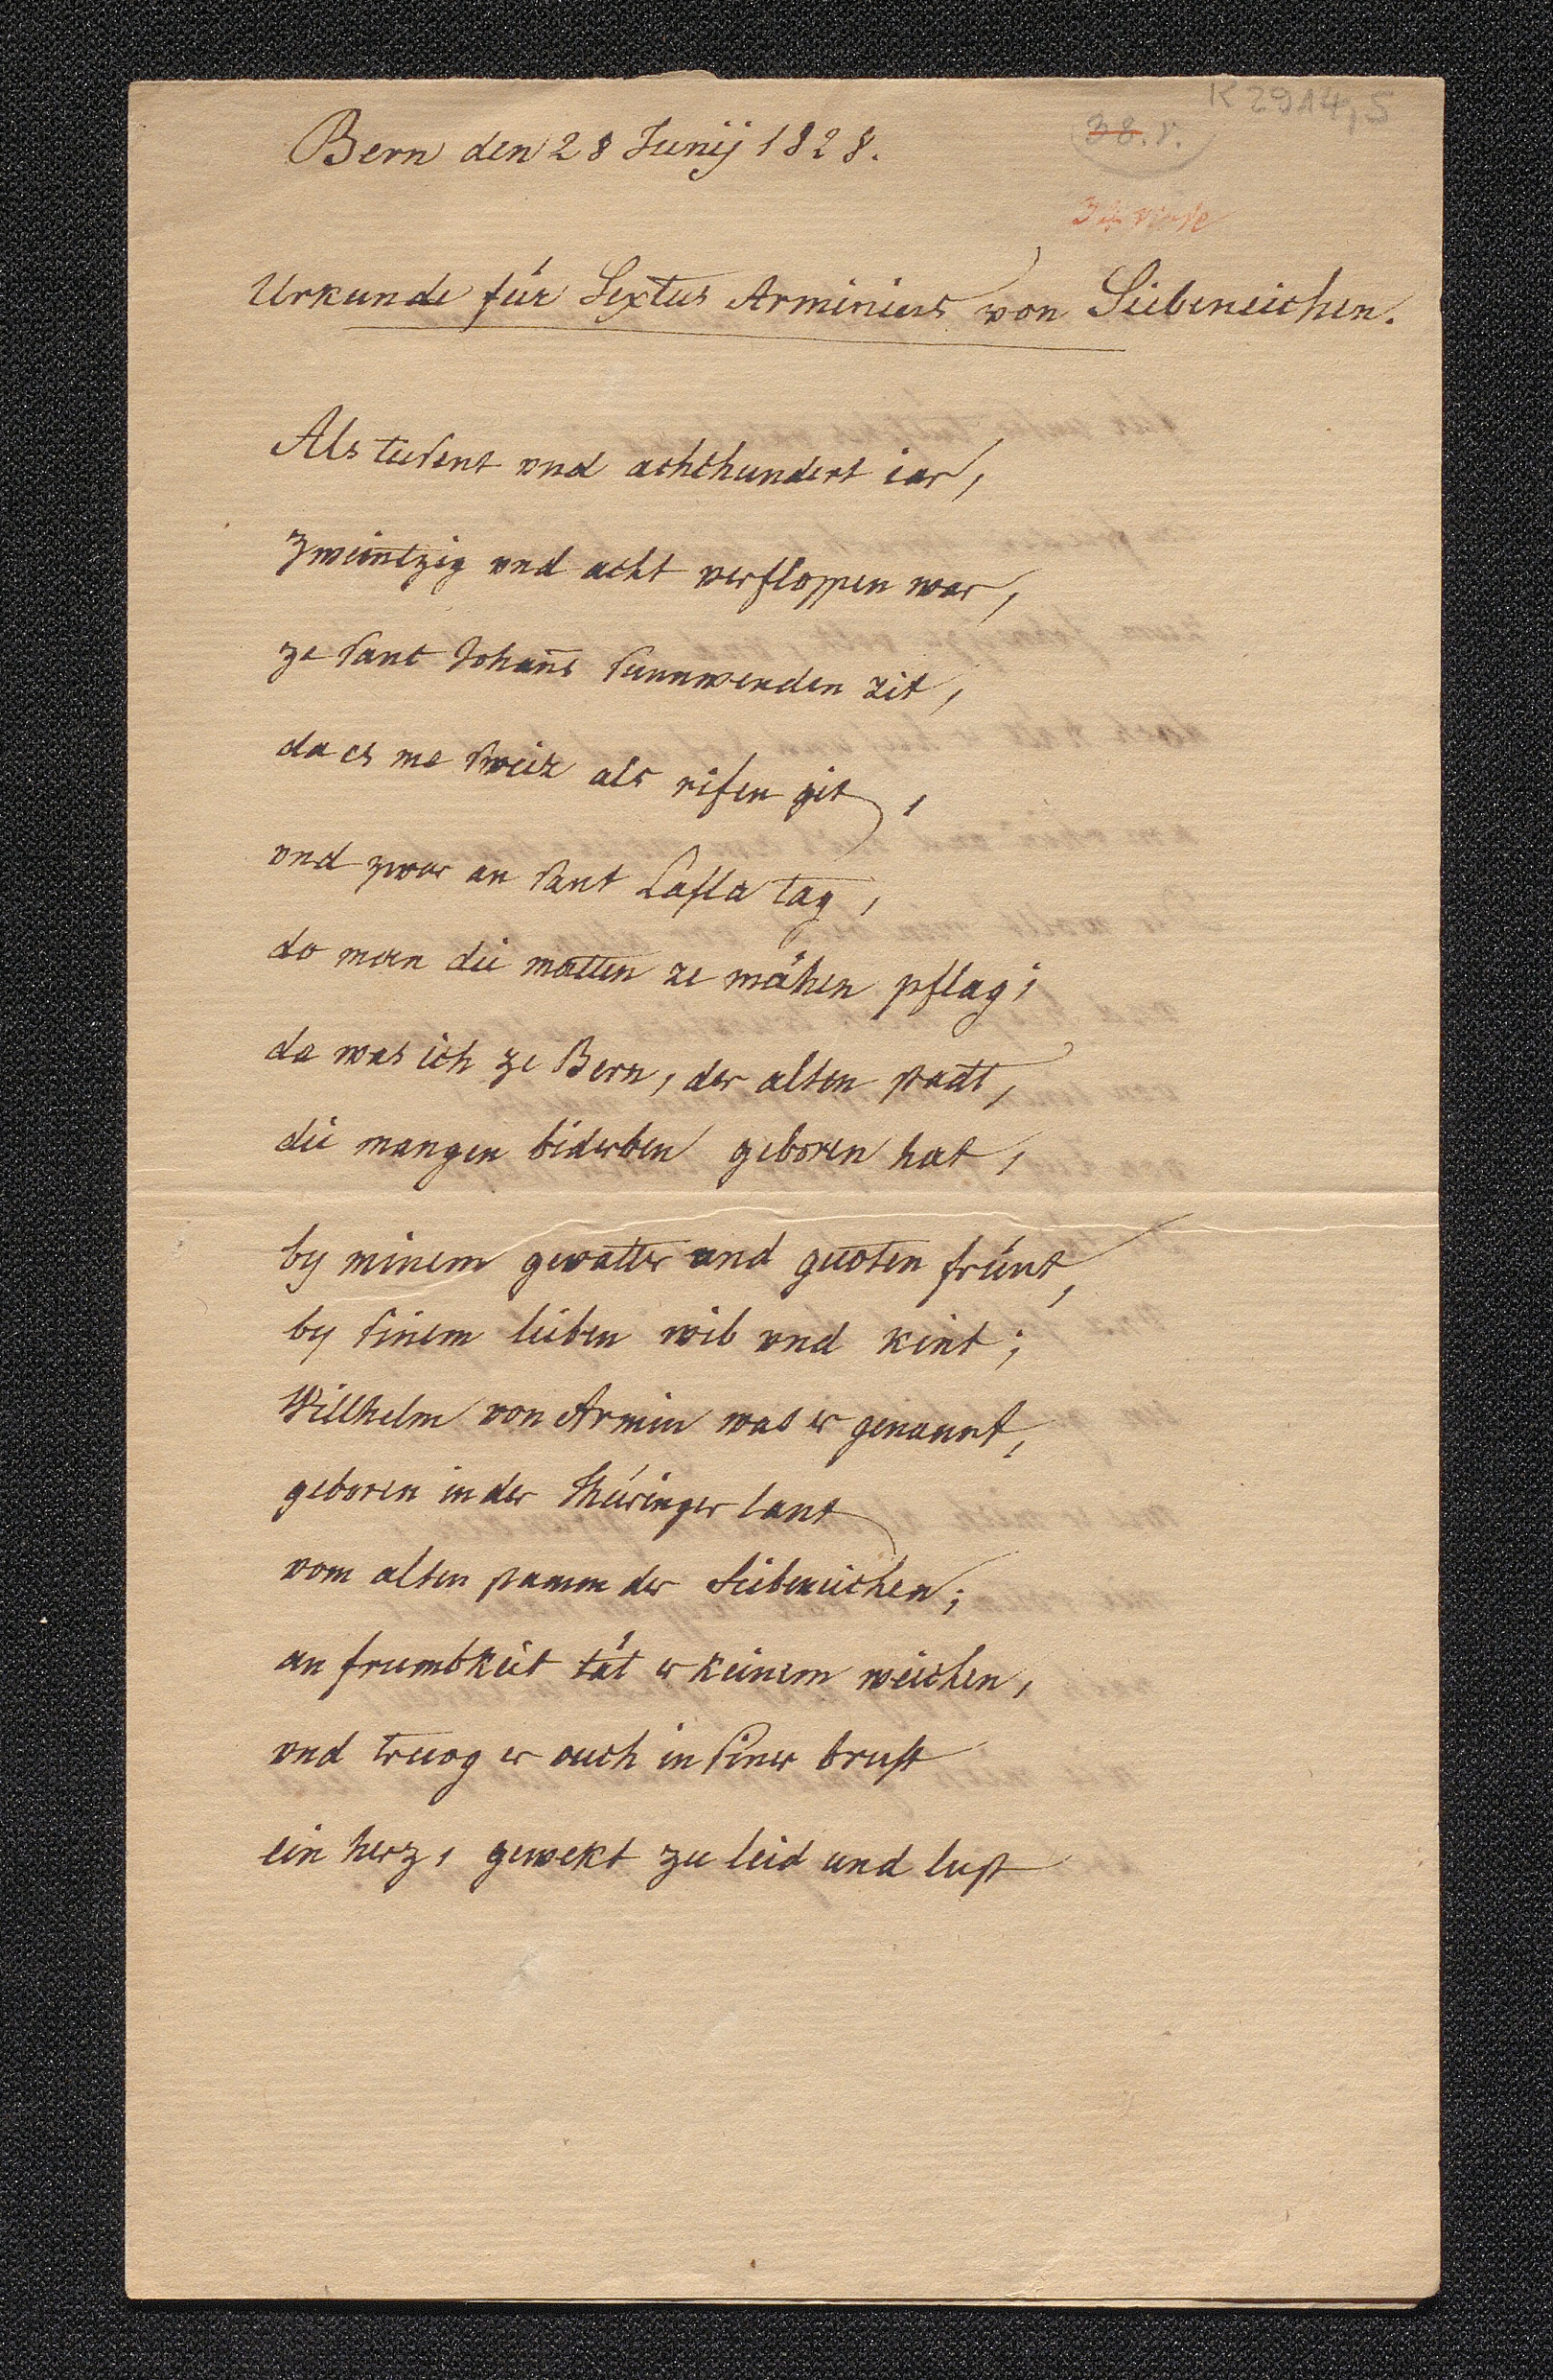 K 2914,5
38.V.
Bern den 28 Junij 1828.
Urkunde für Sextus Arminius von Siebeneichen.
Als tusent vnd achthundert iar,
zweintzig vnd acht verflossen war,
ze sant Johans sunnwenden zit,
da es me sweiz als risen git,
vnd zwar an sant Lasla tag,
do man die matten ze mähen pflag;
da was ich ze Bern, der alten stadt,
die mangen biderben geboren hat,
by minem gevatter und guoten fründ,
by sinem lieben wib vnd kint;
Willhelm von Armin was er genannt,
geboren in der Thüringer lant
vom alten stamm der Siebeneichen;
an frumbkeit tät er keinem weichen,
vnd truog er ouch in siner brust
ein herz, gewekt zu leid und lust